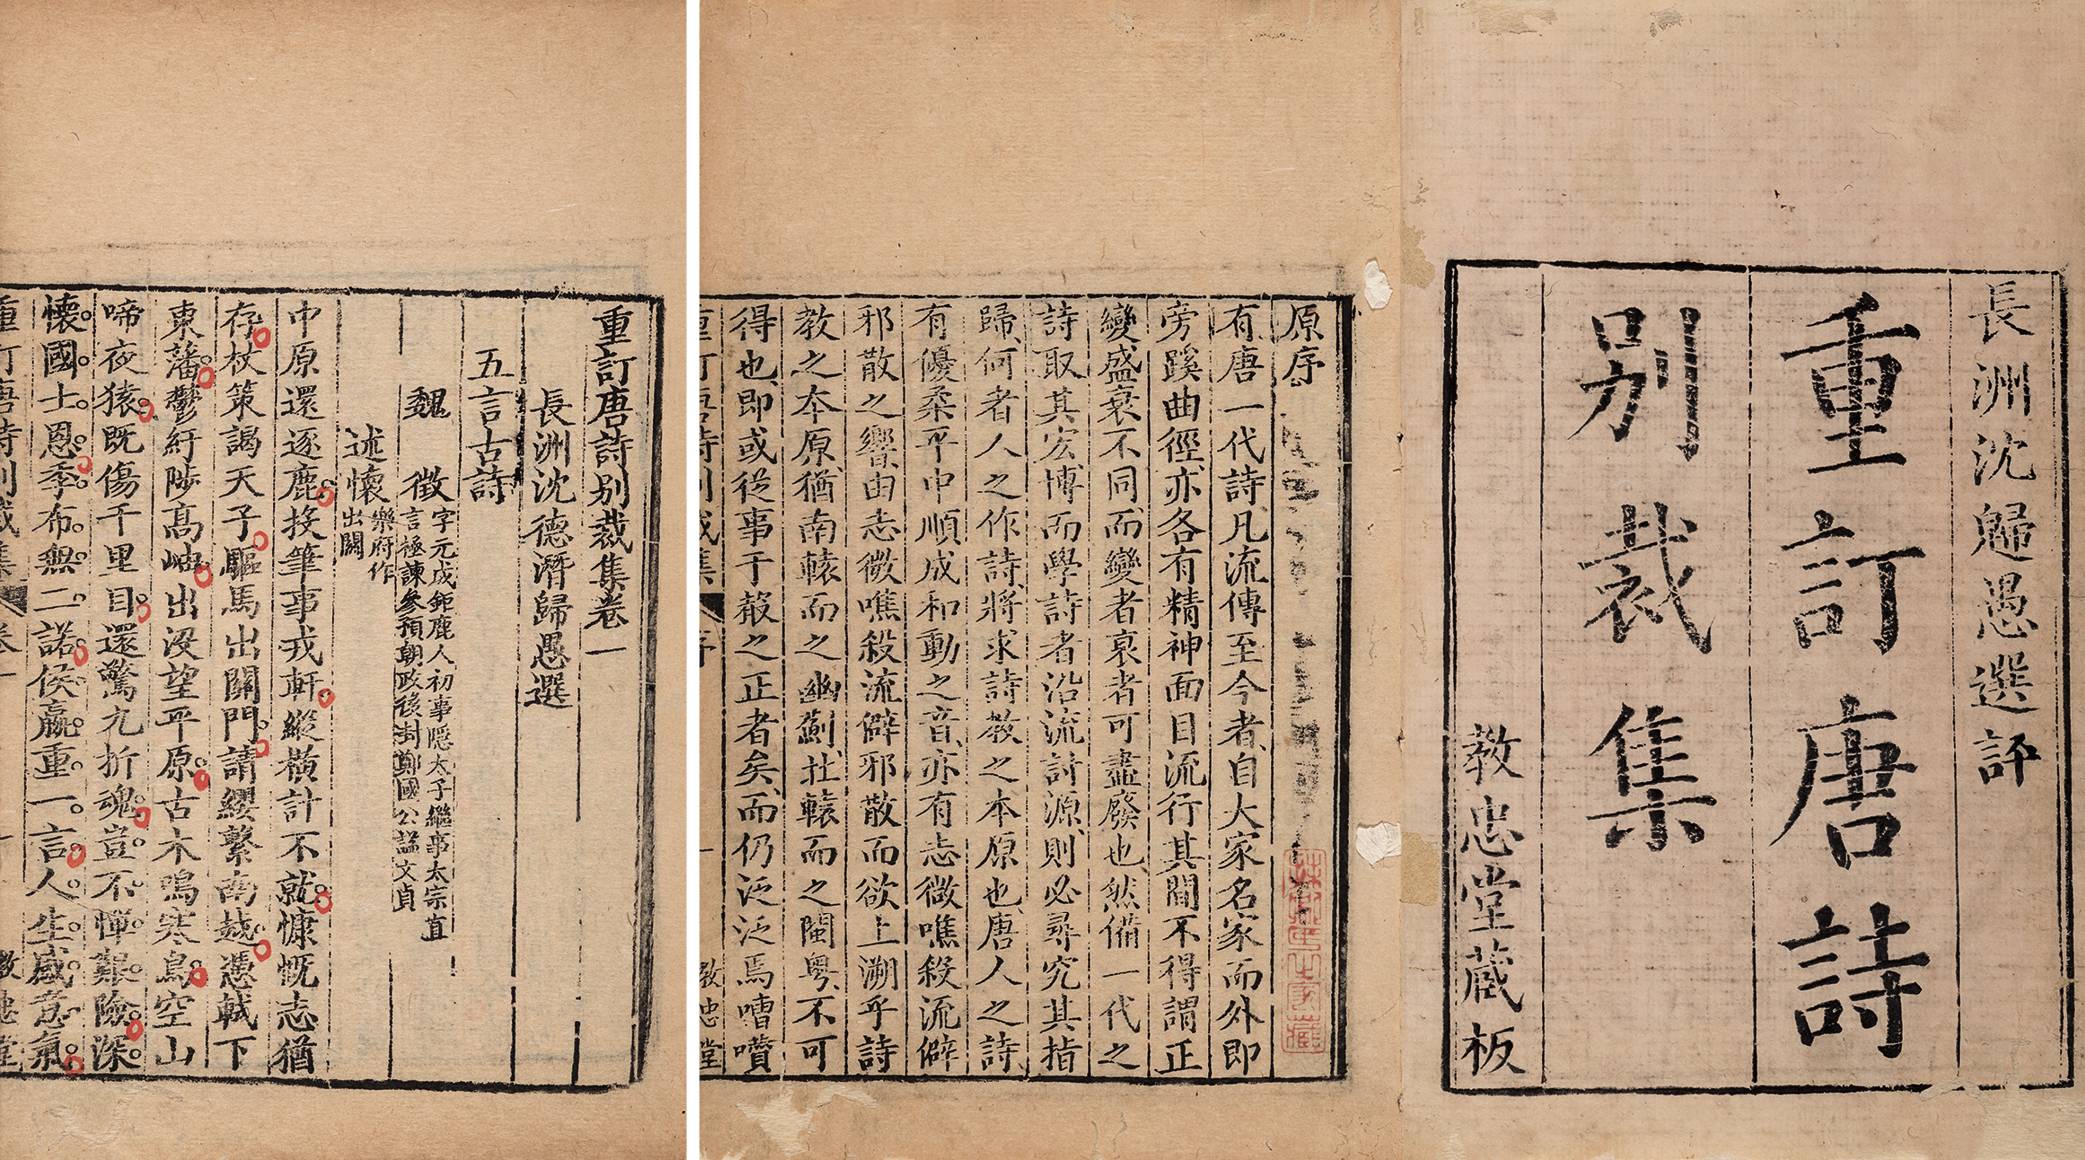 長洲沈歸愚選評
重訂唐詩
別裁集
教忠堂藏板
原序
有唐一代詩凡流傳至今者自大家名家而外即
旁蹊曲徑亦各有精神面目流行其間不得謂正
變盛衰不同而變者衰者可盡廢也然備一代之
詩取其宏博而學詩者沿流討源則必尋究其指
歸何者人之作詩將求詩教之本原也唐人之詩
有優柔平中順成和動之音亦有志微噍殺流僻
邪散之響由志微噍殺流僻邪散而欲上溯乎詩
教之本原猶南轅而之幽薊北轅而之閩粵不可
得也即或從事于殽之正者矣而仍泛泛焉嘈囋
重訂唐詩別裁集 序 一 教忠堂
重訂唐詩別裁集卷一
長洲沈德潛歸愚選
五言古詩
魏徵 字元成鉅鹿人初事隱太子繼事太宗直
言極諫參預朝政後封鄭國公諡文貞
述懷 樂府作
出關
中原還逐鹿投筆事戎軒縱橫計不就慷慨志猶
存杖策謁天子驅馬出關門請纓繫南越憑軾下
東藩鬱紆陟高岫出沒望平原古木鳴寒鳥空山
啼夜猿既傷千里目還驚九折魂豈不憚艱險深
懷國士恩季布無二諾侯嬴重一言人生感意氣
重訂唐詩別裁集 卷一 一 教忠堂